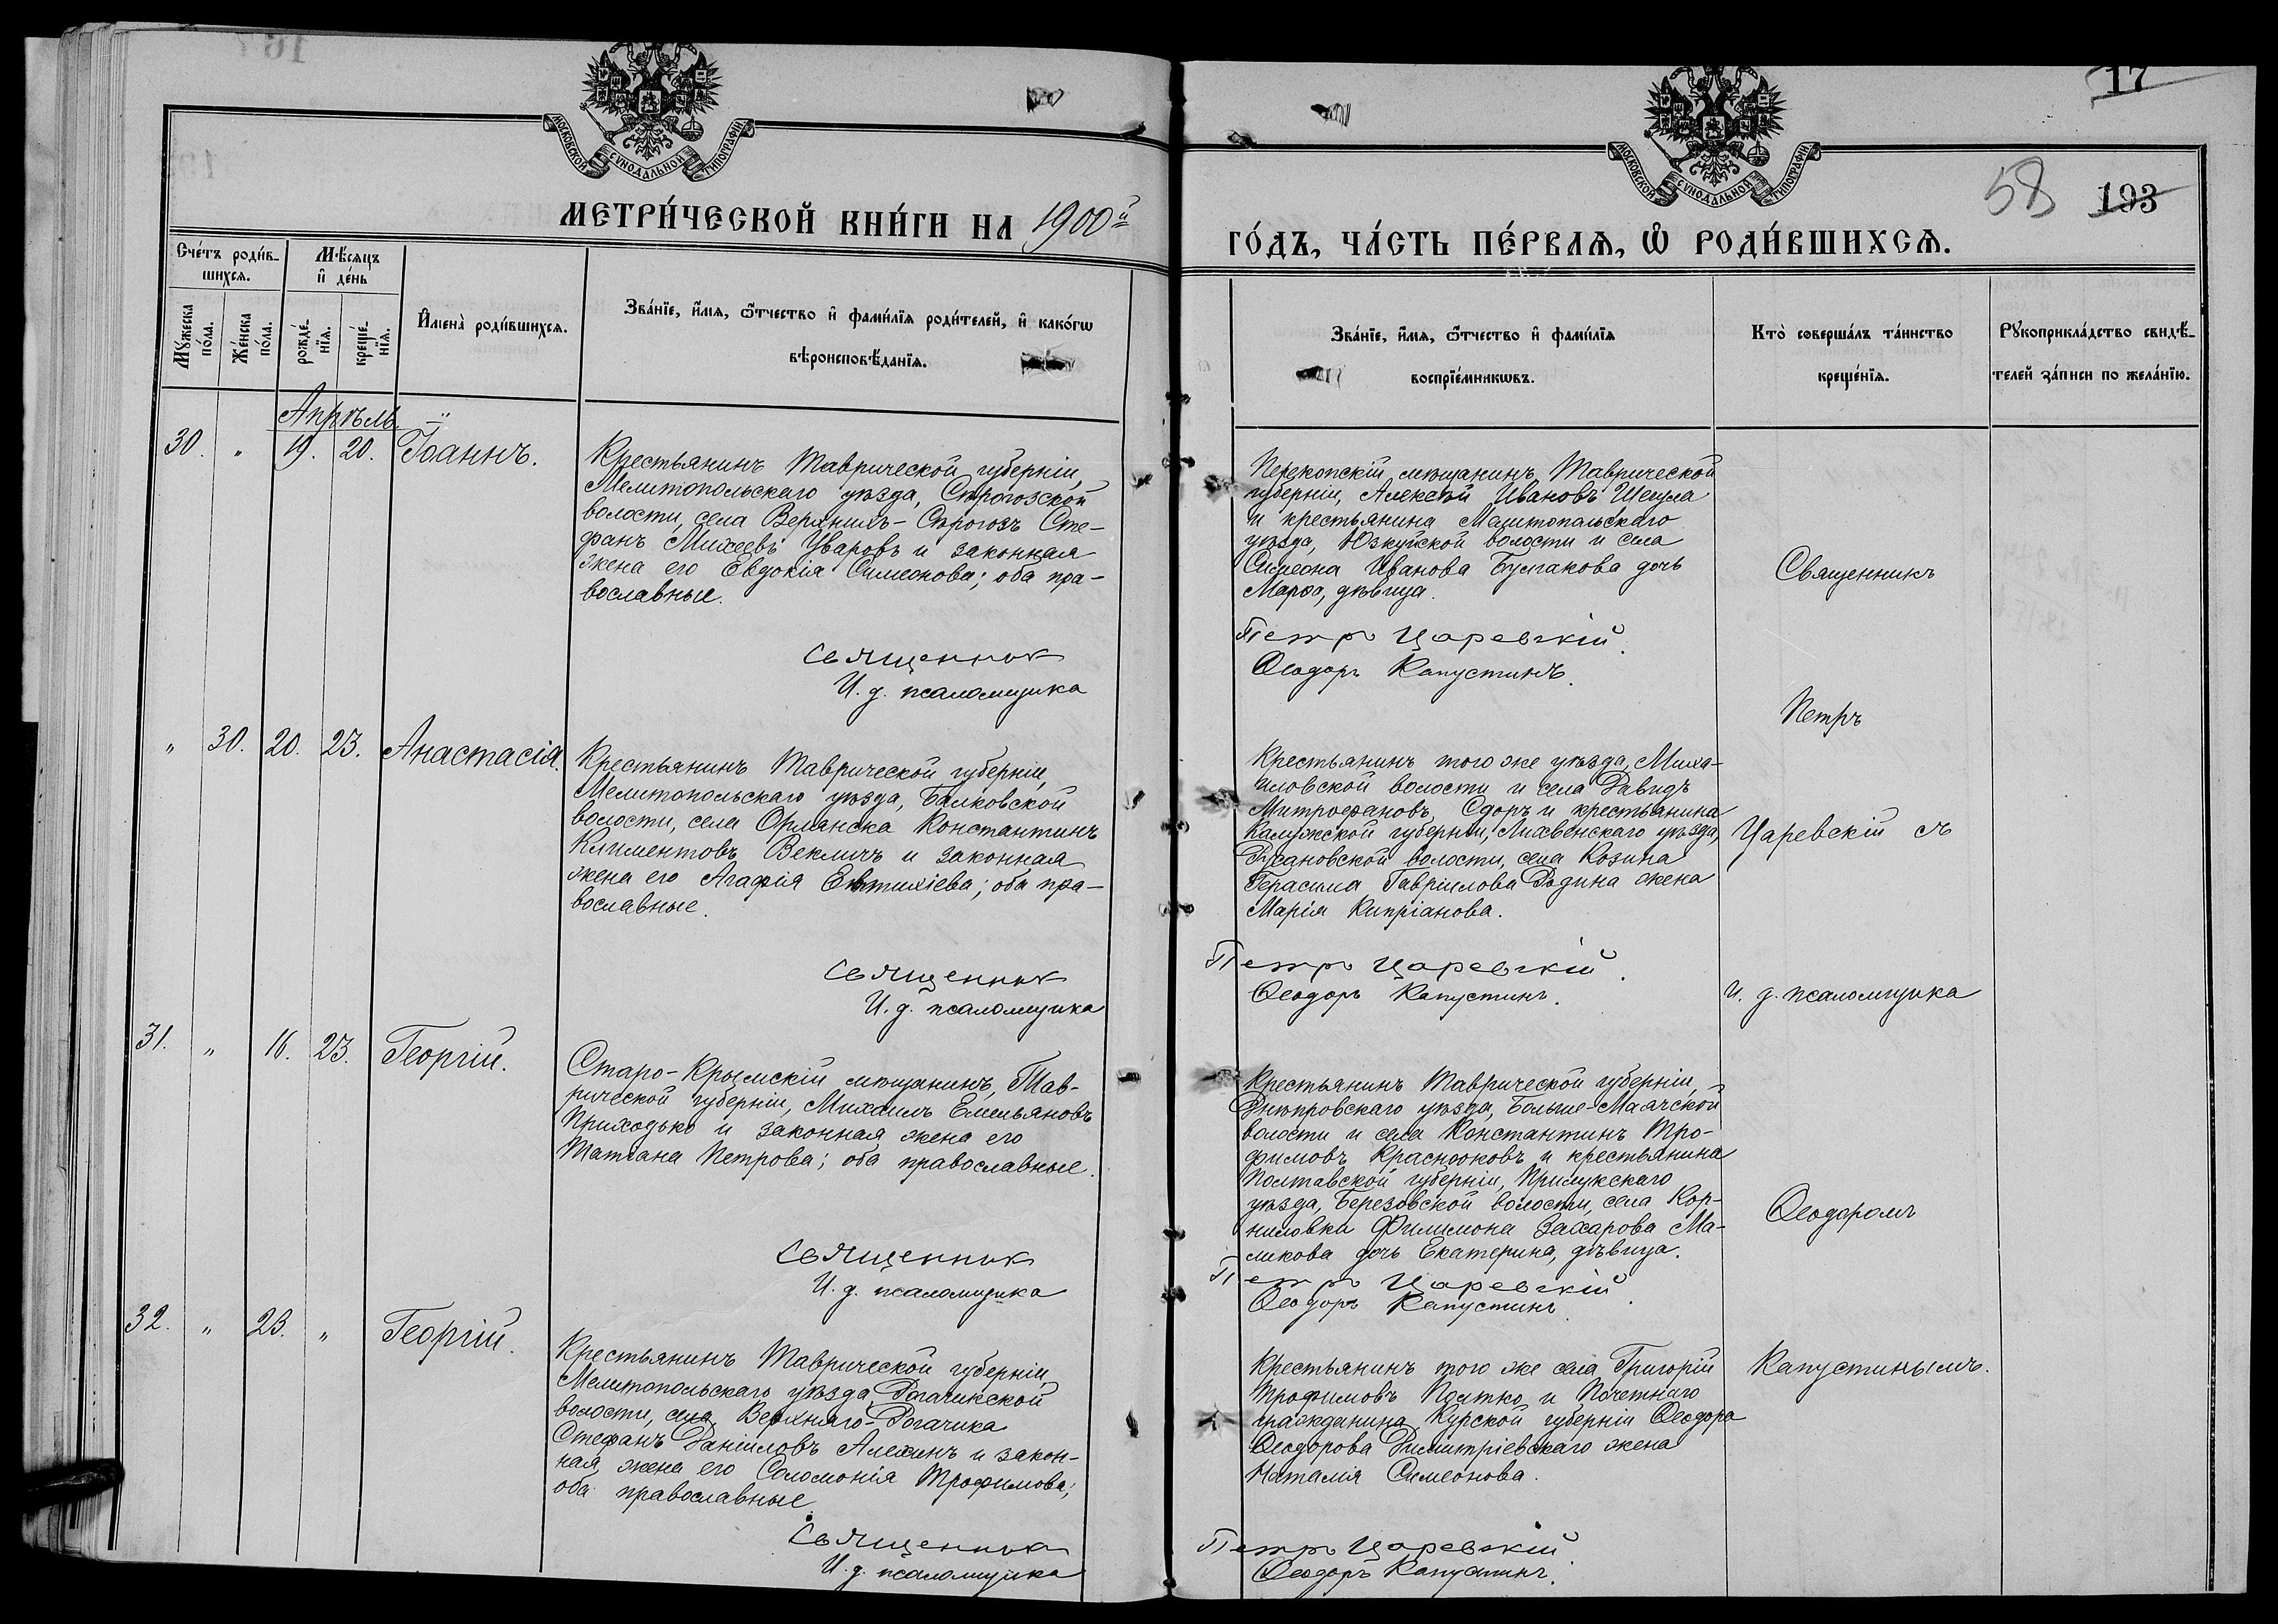 17
58 193
МОСКОВСКОЙ СѴНОДАЛЬНОЙ ТИПОГРАФІИ.
МОСКОВСКОЙ СѴНОДАЛЬНОЙ ТИПОГРАФІИ.
МЕТРИ́ЧЕСКОЙ КНИ́ГИ НА 1900й
ГО́ДЪ, ЧА́СТЬ ПЕ́РВАѦ, Ѡ҆ РОДИ́ВШИХСѦ.
Сче́тъ роди́в-
шихсѧ.
Мꙋ́жеска
по́ла.
Же́нска
по́ла.
Мѣ́сѧцъ
и҆ де́нь
рожде́-
нїѧ.
креще́-
нїѧ.
И҆мена̀ роди́вшихсѧ.
Зва́нїе, и҆́мѧ, ѻ҆́тчество и҆ фами́лїѧ роди́телей, и҆ како́гѡ
вѣроисповѣ́данїѧ.
Зва́нїе, и҆́мѧ, ѻ҆́тчество и҆ фами́лїѧ
воспрїе́мникѡвъ.
Кто̀ соверша́лъ та́инство
креще́нїѧ.
Рꙋкоприкла́дство свидѣ́-
телей за́писи по жела́нїю.
Апрѣль.
30. „ 19. 20. Іоаннъ.
Крестьянинъ Таврической губерніи,
Мелитопольскаго уѣзда, Строгозской
волости, села Верхнихъ-Строгозъ Сте-
фанъ Михеевъ Уваровъ и законная
жена его Евдокія Симеонова; оба пра-
вославные.
Священник
И. д. псаломщика
Перекопскій мѣщанинъ, Таврической
губерніи, Алексѣй Ивановъ Шешула
и крестьянина Мелитопольскаго
уѣзда, Юзкуйской волости и села
Симеона Иванова Булгакова дочь
Марѳа, дѣвица.
Петр Царевскій.
Ѳеодоръ Капустинъ.
„ 30. 20. 23. Анастасія.
Крестьянинъ Таврической губерніи,
Мелитопольскаго уѣзда, Балковской
волости, села Орлянска Константинъ
Климентовъ Векличъ и законная
жена его Агафія Евтихіева; оба пра-
вославные.
Священник
И. д. псаломщика
Крестьянинъ того же уѣзда, Миха-
иловской волости и села Давидъ
Митрофановъ Сдоръ и крестьянина
Калужской губерніи, Лихвенскаго уѣзда,
волости, села Козина
Герасима Гавріилова Родина жена
Марія Кипріанова.
Петр Царевскій.
Ѳеодоръ Капустинъ.
31. „ 16. 23. Георгій.
Старо-Крымскій мѣщанинъ, Тав-
рической губерніи, Михаилъ Емельяновъ
Приходько и законная жена его
Татіана Петрова; оба православные.
Священник
И. д. псаломщика
Крестьянинъ Таврической губерніи,
Днѣпровскаго уѣзда, Больше-Маячской
волости и села Константинъ Тро-
фимовъ Краснооковъ и крестьянина
Полтавской губерніи, Прилукскаго
уѣзда, Березовской волости, села Кор-
ниловки Филимона Захарова Ма-
ликова дочь Екатерина, дѣвица.
Петр Царевскій.
Ѳеодоръ Капустинъ.
32. „ 23. „ Георгій.
Крестьянинъ Таврической губерніи,
Мелитопольскаго уѣзда, Рогачикской
волости, села Верхняго-Рогачика
Стефанъ Даніиловъ Алехинъ и закон-
ная жена его Соломонія Трофимова;
оба православные.
Священник
И. д. псаломщика
Крестьянинъ того же села Григорій
Трофимовъ Полтко и Почетнаго
гражданина Курской губерніи Ѳеодора
Ѳеодорова Димитріевскаго жена
Наталія Симеонова.
Петр Царевскій.
Ѳеодоръ Капустинъ.
Священникъ
Петръ
Царевскій съ
и. д. псаломщика
Ѳеодоромъ
Капустинымъ.